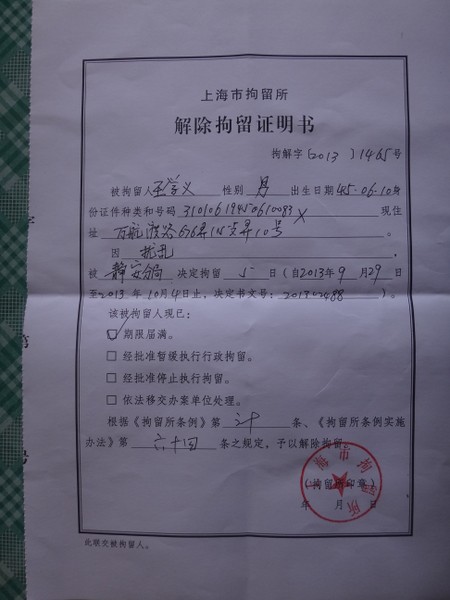 上海市拘留所
解除拘留证明书
拘解字〔2013〕1465号
被拘留人 王学义 性别 男 出生日期 45.06.10 身
份证件种类和号码 310106194506100083X 现住
址 万航渡路676弄 号。
因 扰乱 。
被 静安分局 决定拘留 5 日(自2013年9月29日
至2013年10月4日止,决定书文号:201302488)。
该被拘留人现已:
☑ 期限届满。
□ 经批准暂缓执行行政拘留。
□ 经批准停止执行拘留。
□ 依法移交办案单位处理。
根据《拘留所条例》第 条、《拘留所条例实施
办法》第 六十四 条之规定,予以解除拘留。
(拘留所印章)
上海市拘留所
年 月 日
此联交被拘留人。